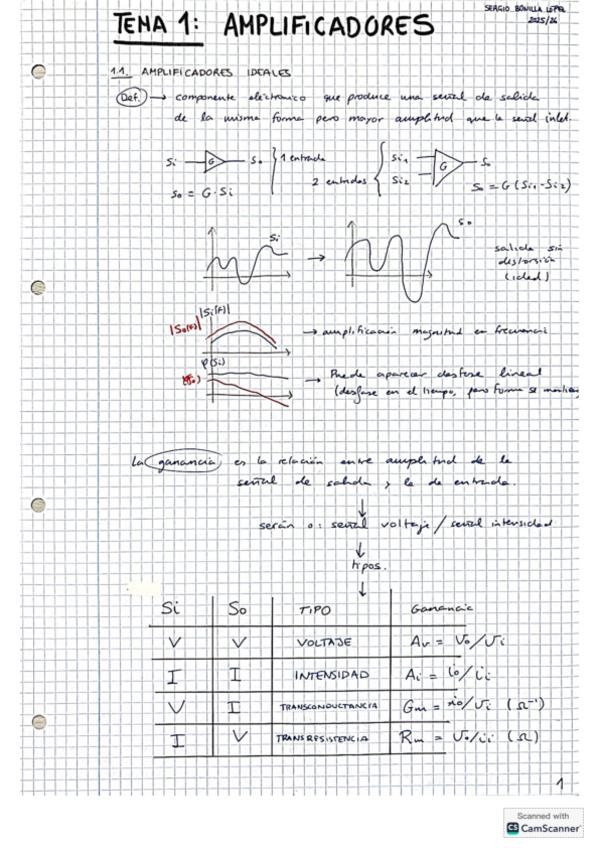 SERGIO BONILLA LÓPEZ
2025/26
TEMA 1: AMPLIFICADORES
1.1. AMPLIFICADORES IDEALES
Def. → componente electrónico que produce una señal de salida
de la misma forma pero mayor amplitud que la señal
Si G So } 1 entrada
So = G · Si
2 entradas { Si1 Si2 G So
So = G (Si1 - Si2)
Si → So
salida sin
distorsión
(ideal)
|Si(F)|
|So(F)|
→ amplificación magnitud en frecuencia
φ(Si)
→ Puede aparecer desfase lineal
(desfase en el tiempo, pero forma se
La ganancia es la relación entre amplitud de la
señal de salida y la de entrada.
↓
serán o: señal voltaje / señal intensidad
↓
tipos.
↓
Si So TIPO Ganancia
V V VOLTAJE Av = Vo/Vi
I I INTENSIDAD Ai = io/ii
V I TRANSCONDUCTANCIA Gm = io/Vi (Ω⁻¹)
I V TRANSRESISTENCIA Rm = Vo/ii (Ω)
1
Scanned with
CS CamScanner